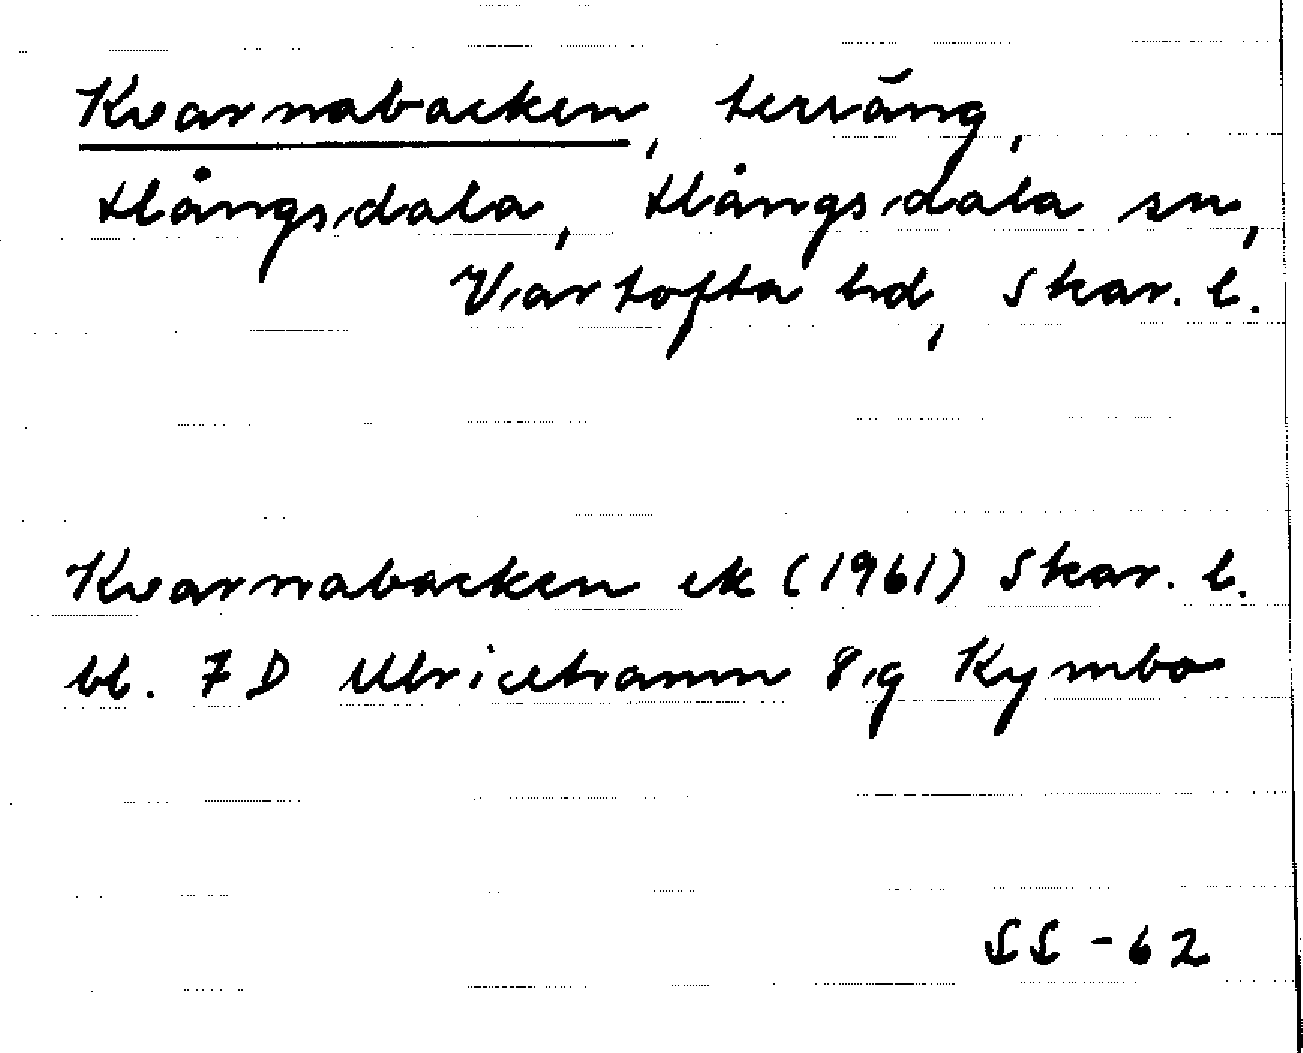 Kvarnabacken, terräng,
Hångsdala, Hångsdala sn,
Vartofta hd, Skar. l.
Kvarnabacken ek (1961) Skar. l.
bl. 7 D Ulricehamn 8 g Kymbo
SS - 62